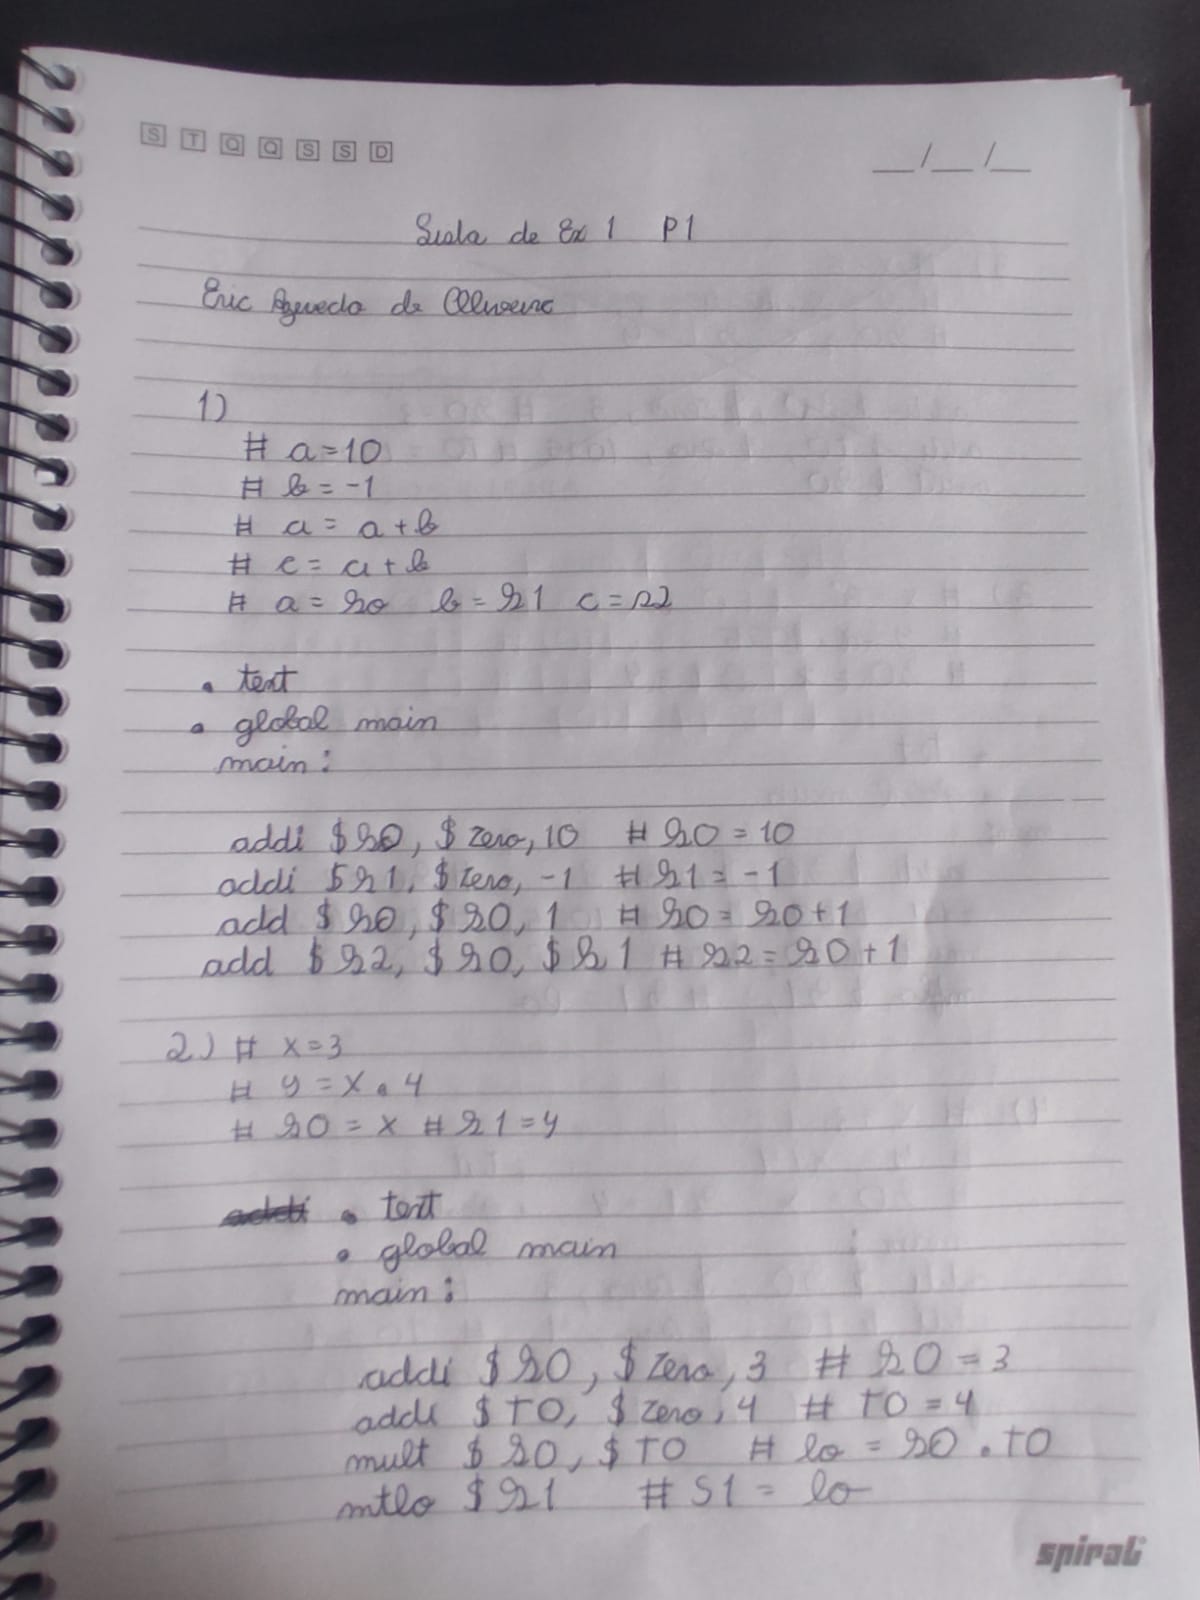 S T Q Q S S D
__/__/__
Lista de Ex 1 P1
Eric Azevedo de Oliveira
1)
# a=10
# b=-1
# a= a+b
# c= a+b
# a= s0 b= s1 c= s2
. text
. global main
main:
addi $s0, $zero, 10 # s0=10
addi $s1, $zero, -1 # s1=-1
add $s0, $s0, 1 # s0= s0+1
add $s2, $s0, $s1 # s2= s0+1
2.) # x=3
# y=x.4
# s0=x # s1=y
. text
. global main
main:
addi $s0, $zero, 3 # s0=3
addi $T0, $zero, 4 # T0=4
mult $s0, $T0 # lo = s0 . T0
mtlo $s1 # S1 = lo
spiral